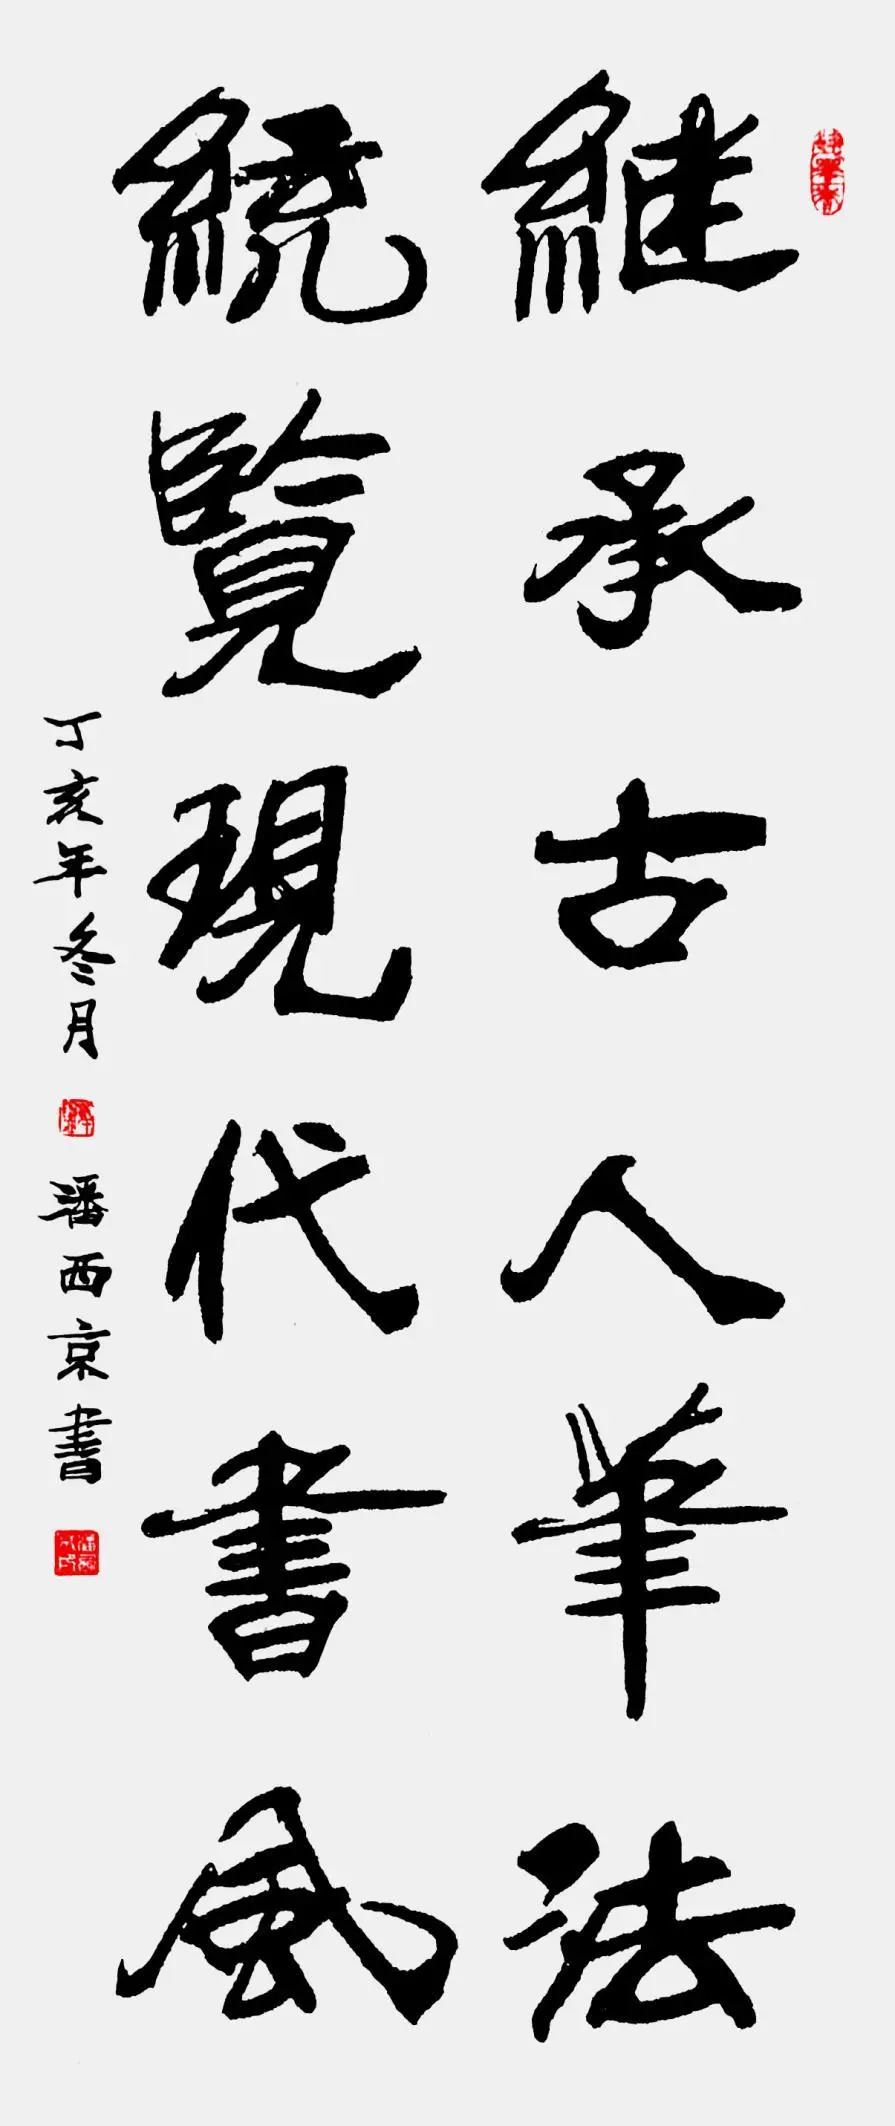 継承古人筆法
統覽現代書風
丁亥年冬月
潘西京書